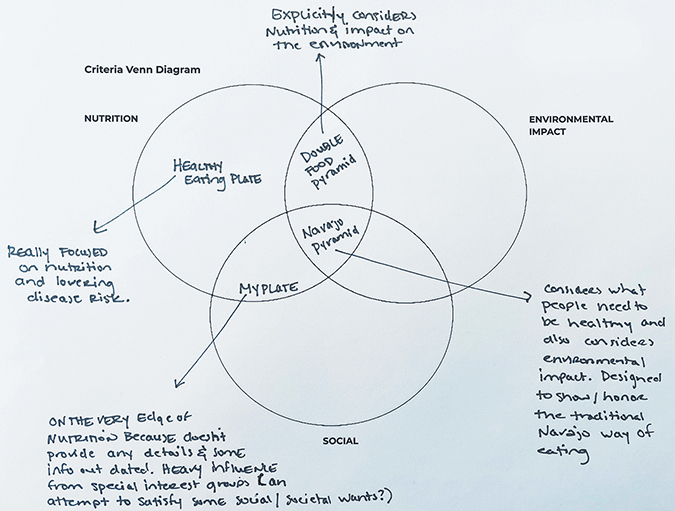 Explicitly considers
Nutrition & impact on
the environment
Criteria Venn Diagram
NUTRITION
ENVIRONMENTAL
IMPACT
DOUBLE
FOOD
Pyramid
HEALTHY
Eating PLATE
Navajo
pyramid
REALLY FOCUSED
on nutrition
and lowering
disease RISK.
MYPLATE
Considers what
people need to
be healthy and
also considers
environmental
impact. Designed
to show/honor
the traditional
Navajo way of
eating
SOCIAL
ON THE VERY Edge of
NUTRITION BECAUSE doesn't
provide any details & some
info out dated. HEAVY INFLUENCE
from special interest groups (an
attempt to satisfy some social/societal wants?)